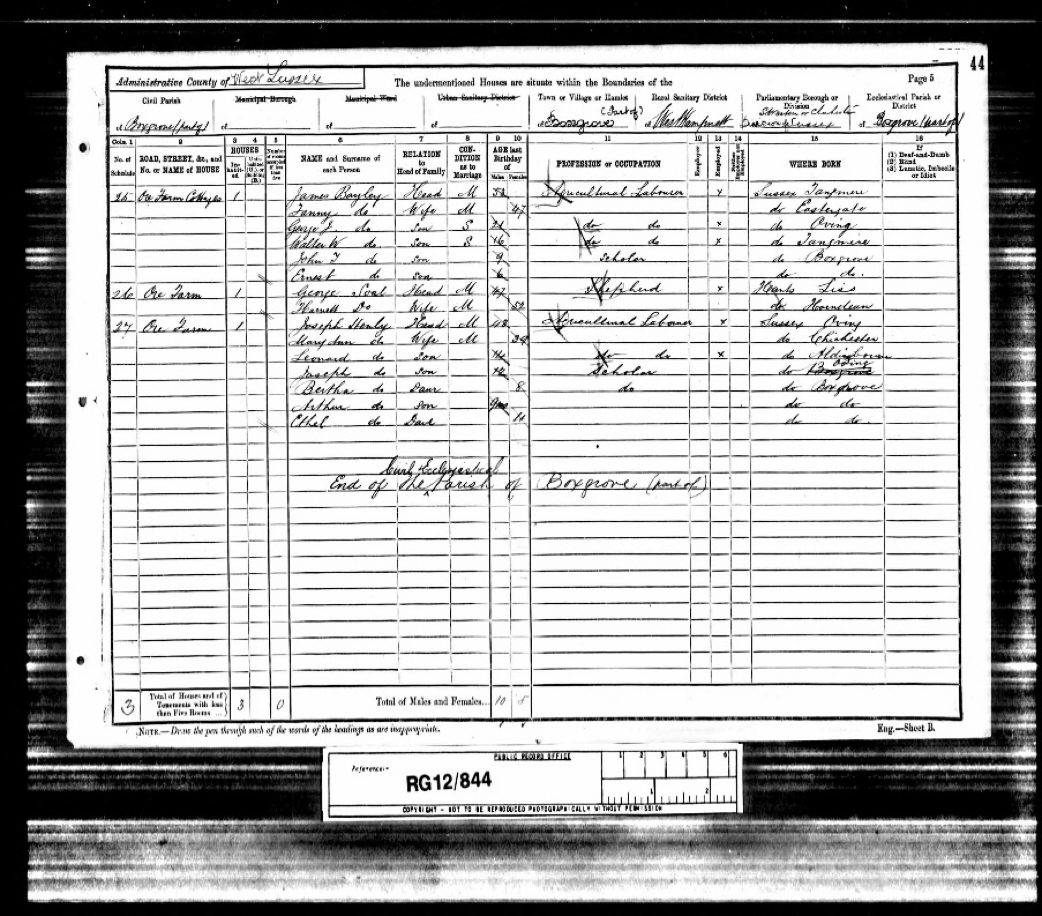 44
Administrative County of West Sussex The undermentioned Houses are situate within the Boundaries of the Page 5
Civil Parish Municipal Borough Municipal Ward Urban Sanitary District Town or Village or Hamlet Rural Sanitary District Parliamentary Borough or Division Ecclesiastical Parish or District
of Boxgrove (part of) of of of of Boxgrove (Part of) of West Hampnett of of Boxgrove (part of)
Colm. 1 2 3 4 5 6 7 8 9 10 11 12 13 14 15 16
No. of Schedule ROAD, STREET, &c., and No. or NAME of HOUSE HOUSES Inhabited Uninhabited (U.), or Building (B.) Number of rooms occupied if less than five NAME and Surname of each Person RELATION to Head of Family CONDITION as to Marriage AGE last Birthday of Males Females PROFESSION or OCCUPATION Employer Employed Neither Employer nor Employed WHERE BORN If (1) Deaf-and-Dumb (2) Blind (3) Lunatic, Imbecile or Idiot
25 Ore Farm Cottages 1 James Bayley Head M Agricultural Labourer x Sussex Tangmere
Fanny do Wife M 47 do Eastergate
George J do Son S 21 do do x do Oving
Walter W do Son S 16 do do x do Tangmere
John T do Son 9 Scholar do Boxgrove
Ernest do Son 6 do do
26 Ore Farm 1 George Soal Head M 47 Shepherd x Hants Liss
Harriett Do Wife M 52 do Horndean
27 Ore Farm 1 Joseph Henly Head M 48 Agricultural Labourer x Sussex Oving
Mary Ann do Wife M 39 do Chichester
Leonard do Son 14 do do x do
Joseph do Son 12 Scholar do Boxgrove Oving
Bertha do Daur 8 do do Boxgrove
Arthur do Son 9mo do do
Ethel do Daur 11 do do
End of the Civil & Ecclesiastical Parish of Boxgrove (part of)
3 Total of Houses and of Tenements with less than Five Rooms 3 0 Total of Males and Females... 10 5
NOTE.—Draw the pen through such of the words of the headings as are inappropriate. Eng.—Sheet B.
PUBLIC RECORD OFFICE
1 2 3 4 5 6
Reference:-
RG12/844
1 2
COPYRIGHT - NOT TO BE REPRODUCED PHOTOGRAPHICALLY WITHOUT PERMISSION